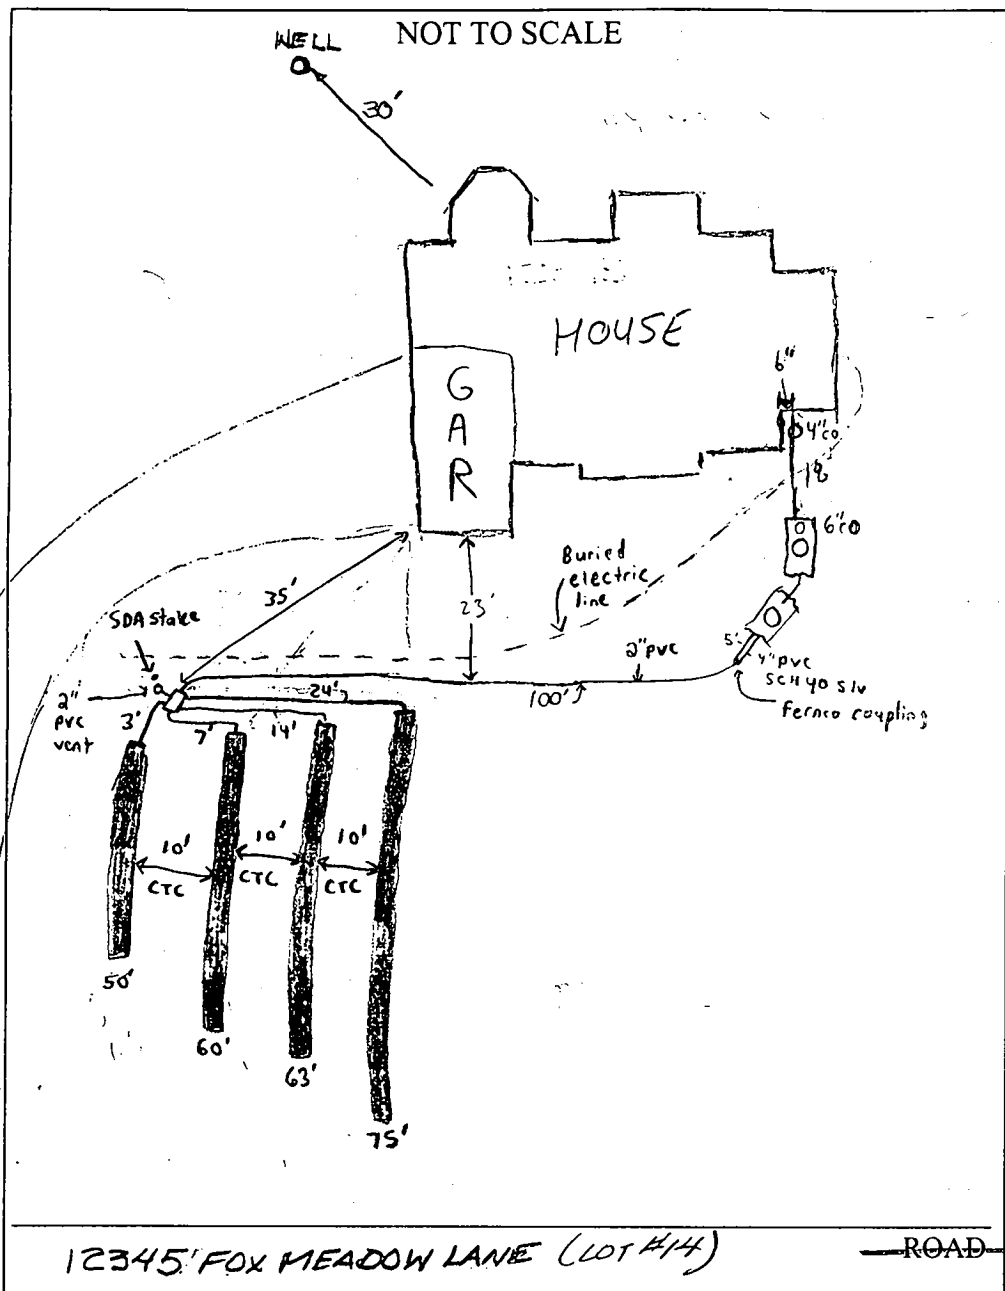 NOT TO SCALE
WELL
30'
HOUSE
6"
GAR
4"co
6"co
Buried
electric
line
35'
23'
SDA stake
2"
pvc
vent
3'
7'
14'
24'
100'
2"pvc
5'
4"pvc
SCH 40 S/W
fernco coupling
10'
CTC
10'
CTC
10'
CTC
50'
60'
63'
75'
12345 FOX MEADOW LANE (LOT #14)
ROAD